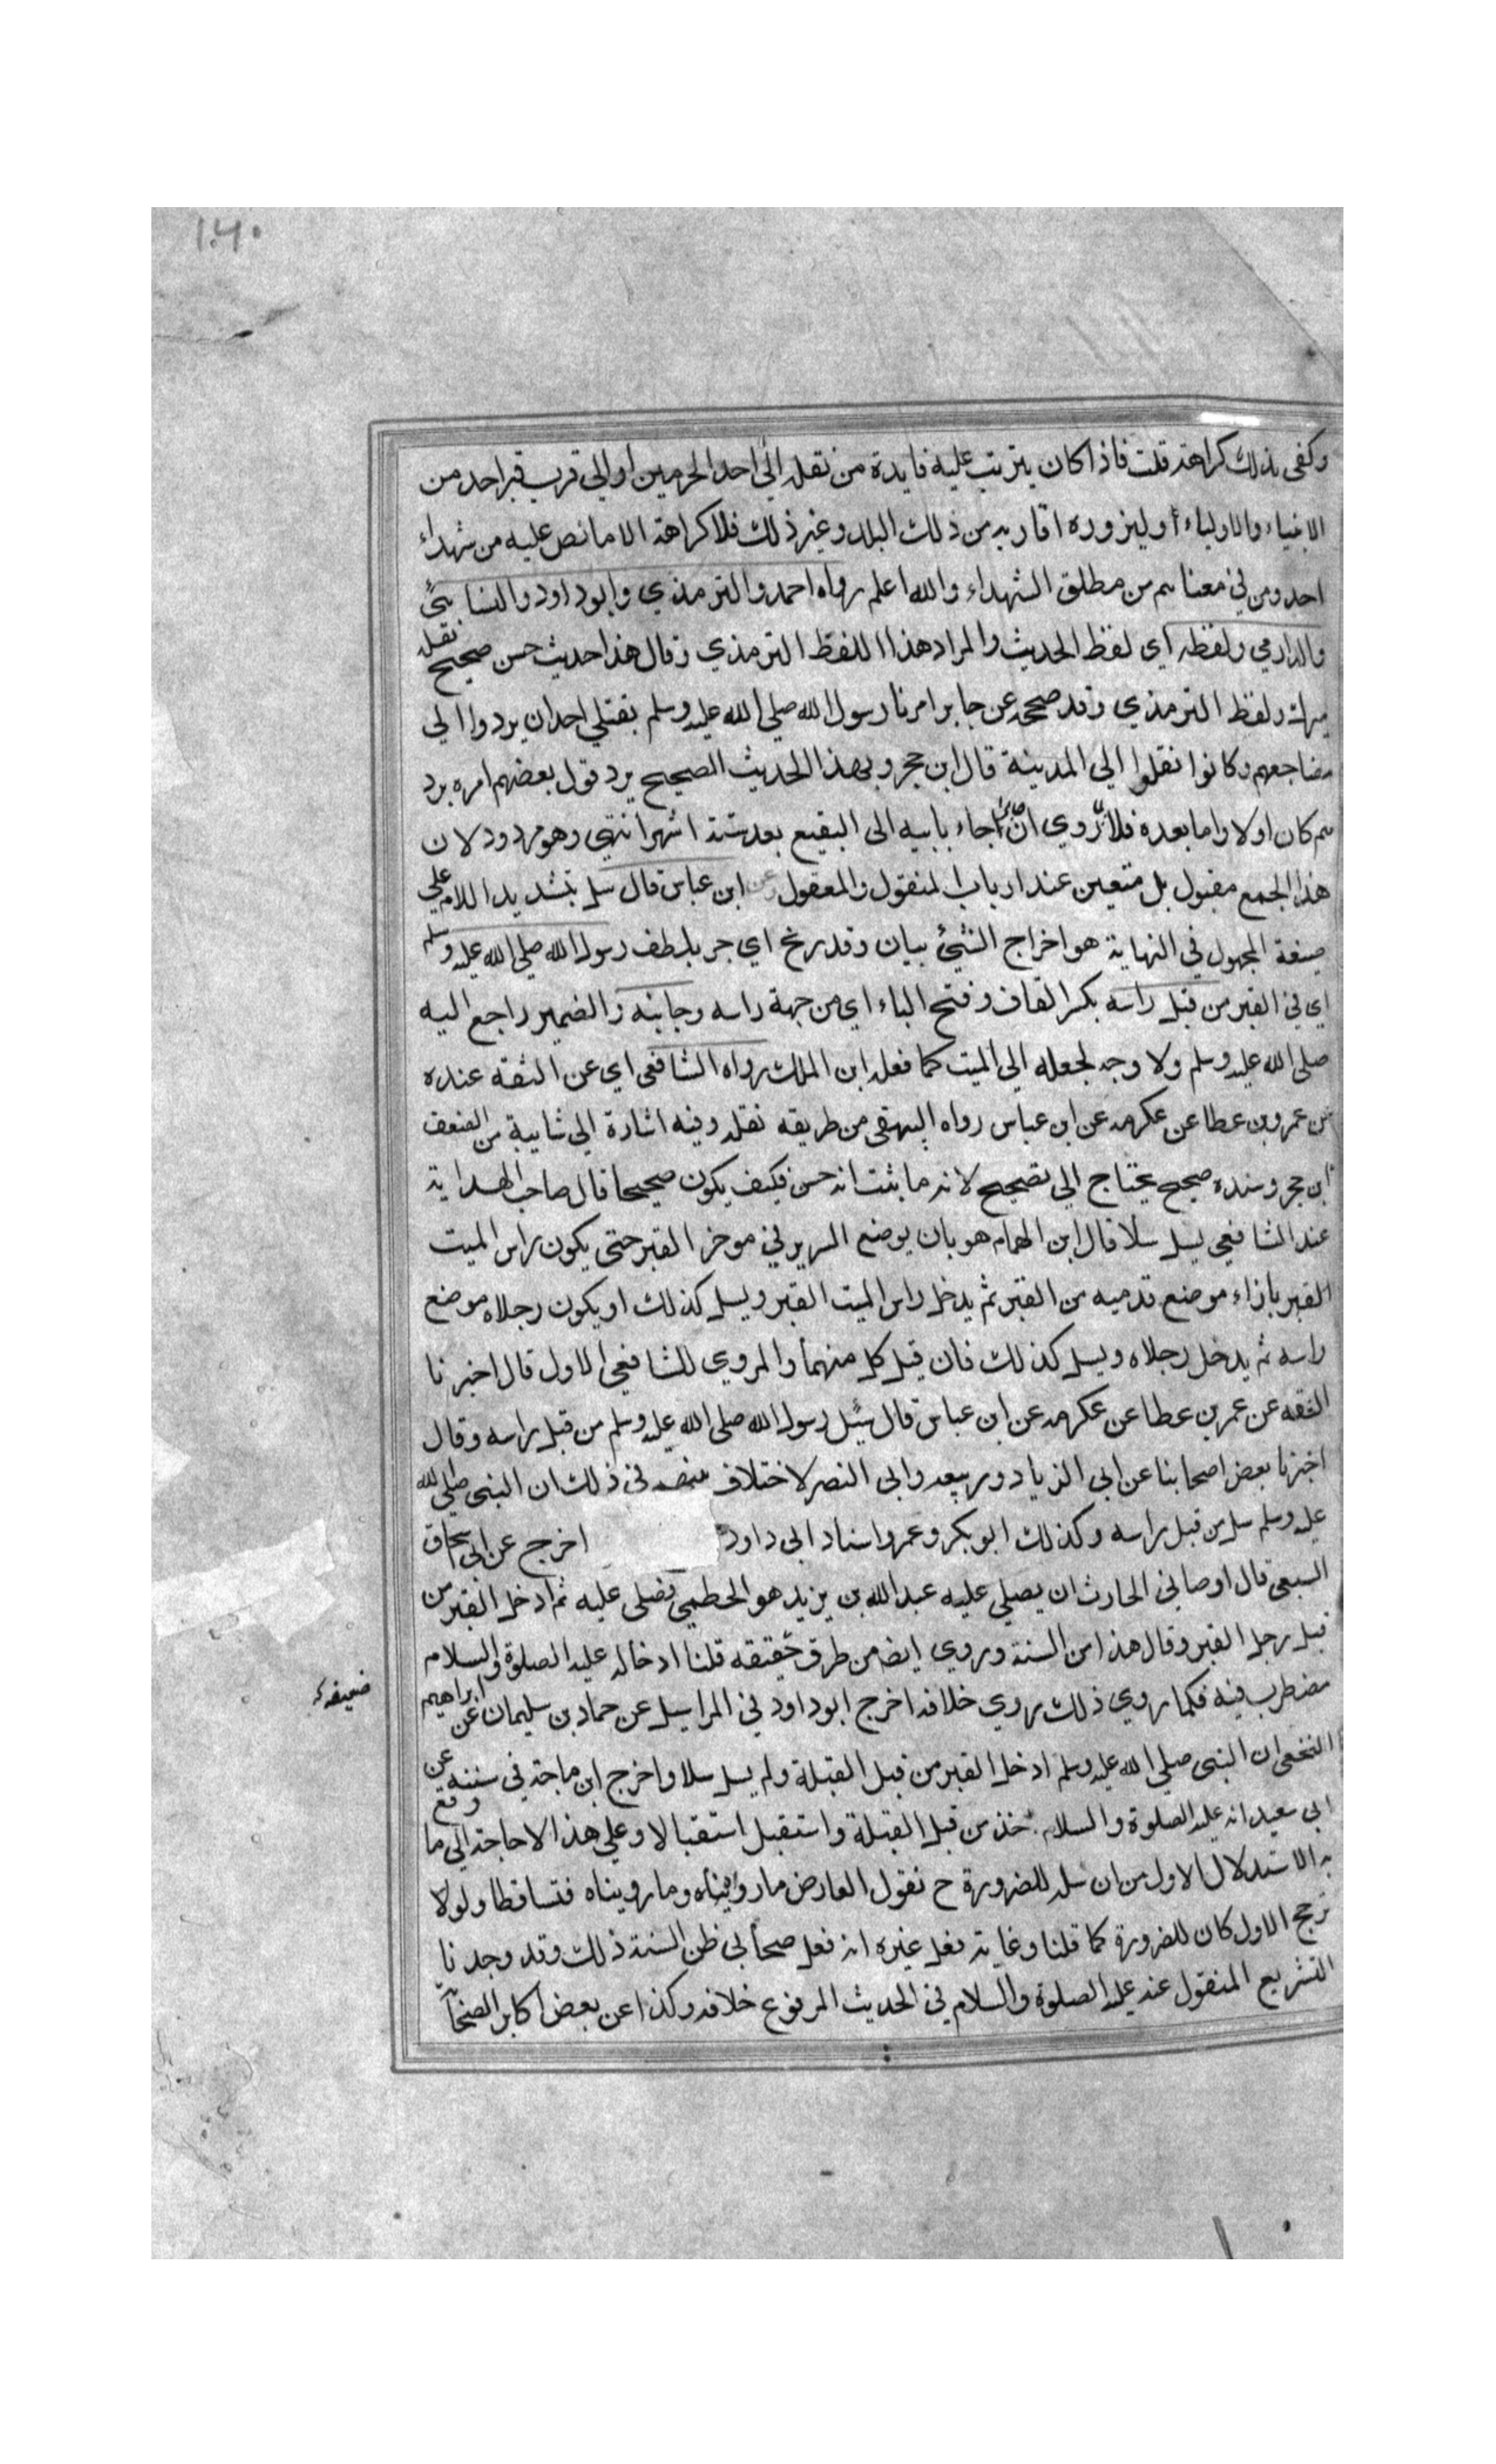 ١٠٤٠
وكفى بذلك كراهة قلت فاذا كان يترتب عليه فايدة من نقله الى احد الحرمين او الى قرب قبر احد من
الانبياء والاولياء أو ليزوره اقاربه من ذلك البلد وغير ذلك فلا كراهة الا ما نص عليه من شهداء
احد ومن في معناهم من مطلق الشهداء والله اعلم رواه احمد والترمذي وابو داود والنسائي
والدارمي ولفظه اي لفظ الحديث والمراد هذا اللفظ الترمذي وقال هذا حديث حسن صحيح نقله
ميرك ولفظ الترمذي وقد صححه عن جابر امرنا رسول الله صلى الله عليه وسلم بقتلي احد ان يردوا الي
مضاجعهم وكانوا نقلوا الي المدينة قال ابن حجر وبهذا الحديث الصحيح يرد قول بعضهم امره برد
هم كان اولا واما بعده فلا روي ان جابرا جاء بابيه الى البقيع بعد ستة اشهر انتهي وهو مردود لان
هذا الجمع مقبول بل متعين عند ارباب المنقول والمعقول وعن ابن عباس قال سل بتشديد اللام علي
صيغة المجهول في النهاية هو اخراج الشيئ بيان وقدريج اي جر بلطف رسول الله صلى الله عليه وسلم
اي في القبر من قبل راسه بكسر القاف وفتح الباء اي من جهة راسه وجانبه والضمير راجع اليه
صلى الله عليه وسلم ولا وجه لجعله الى الميت كما فعله ابن الملك رواه الشافعي اي عن الثقة عنده
عن عمرو بن عطا عن عكرمه عن ابن عباس رواه البيهقي من طريقه نقله وفيه اشارة الى شايبة من الضعف
ابن حجر وسنده صحيح يحتاج الي تصحيح لانه ما ثبت انه حسن فكيف يكون صحيحا قال صاحب الهداية
عند الشافعي يسل سلا قال ابن الهمام هو بان يوضع السرير في موخر القبر حتى يكون راس الميت
القبر بازاء موضع قدميه من القبر ثم يدخل راس الميت القبر ويسل كذلك او يكون رجلاه موضع
راسه ثم يدخل رجلاه ويسل كذلك فان قيل كل منهما والمروي للشافعي الاول قال اخبرنا
الثقه عن عمر بن عطا عن عكرمه عن ابن عباس قال سل رسول الله صلى الله عليه وسلم من قبل راسه وقال
اخبرنا بعض اصحابنا عن ابي الزياد وربيعه وابى النصر لا اختلاف في ذلك ان النبي صلى الله
عليه وسلم سل من قبل راسه وكذلك ابو بكر وعمر واسناد ابى داود اخرج عن ابى اسحاق
السبعي قال اوصاني الحارث ان يصلي عليه عبد الله بن يزيد هو الخطمي فصلى عليه ثم ادخل القبر من
قبل رجل القبر وقال هذا من السنة وروي ايضا من طرق حقيقه قلنا ادخاله عليه الصلوة والسلام
ضعيفه
مضطرب فيه فكما روي ذلك روي خلافه اخرج ابو داود في المراسيل عن حماد بن سليمان عن ابراهيم
النخعي ان النبي صلى الله عليه وسلم ادخل القبر من قبل القبلة ولم يسل سلا واخرج ابن ماجة في سننه عن
ابي سعيد انه عليه الصلوة والسلام اخذ من قبل القبلة واستقبل استقبالا وعلي هذا لا حاجة الي ما وقع
به الاستدلال الاول من ان سله للضرورة ح نقول العارض ما رويناه وما رويناه فتساقطا ولولا
ترجح الاول كان للضرورة كما قلنا وغاية فعل غيره انه فعل صحابي ظن السنة ذلك وقد وجدنا
التشريع المنقول عنه عليه الصلوة والسلام في الحديث المرفوع خلافه وكذا عن بعض اكابر الصحابة